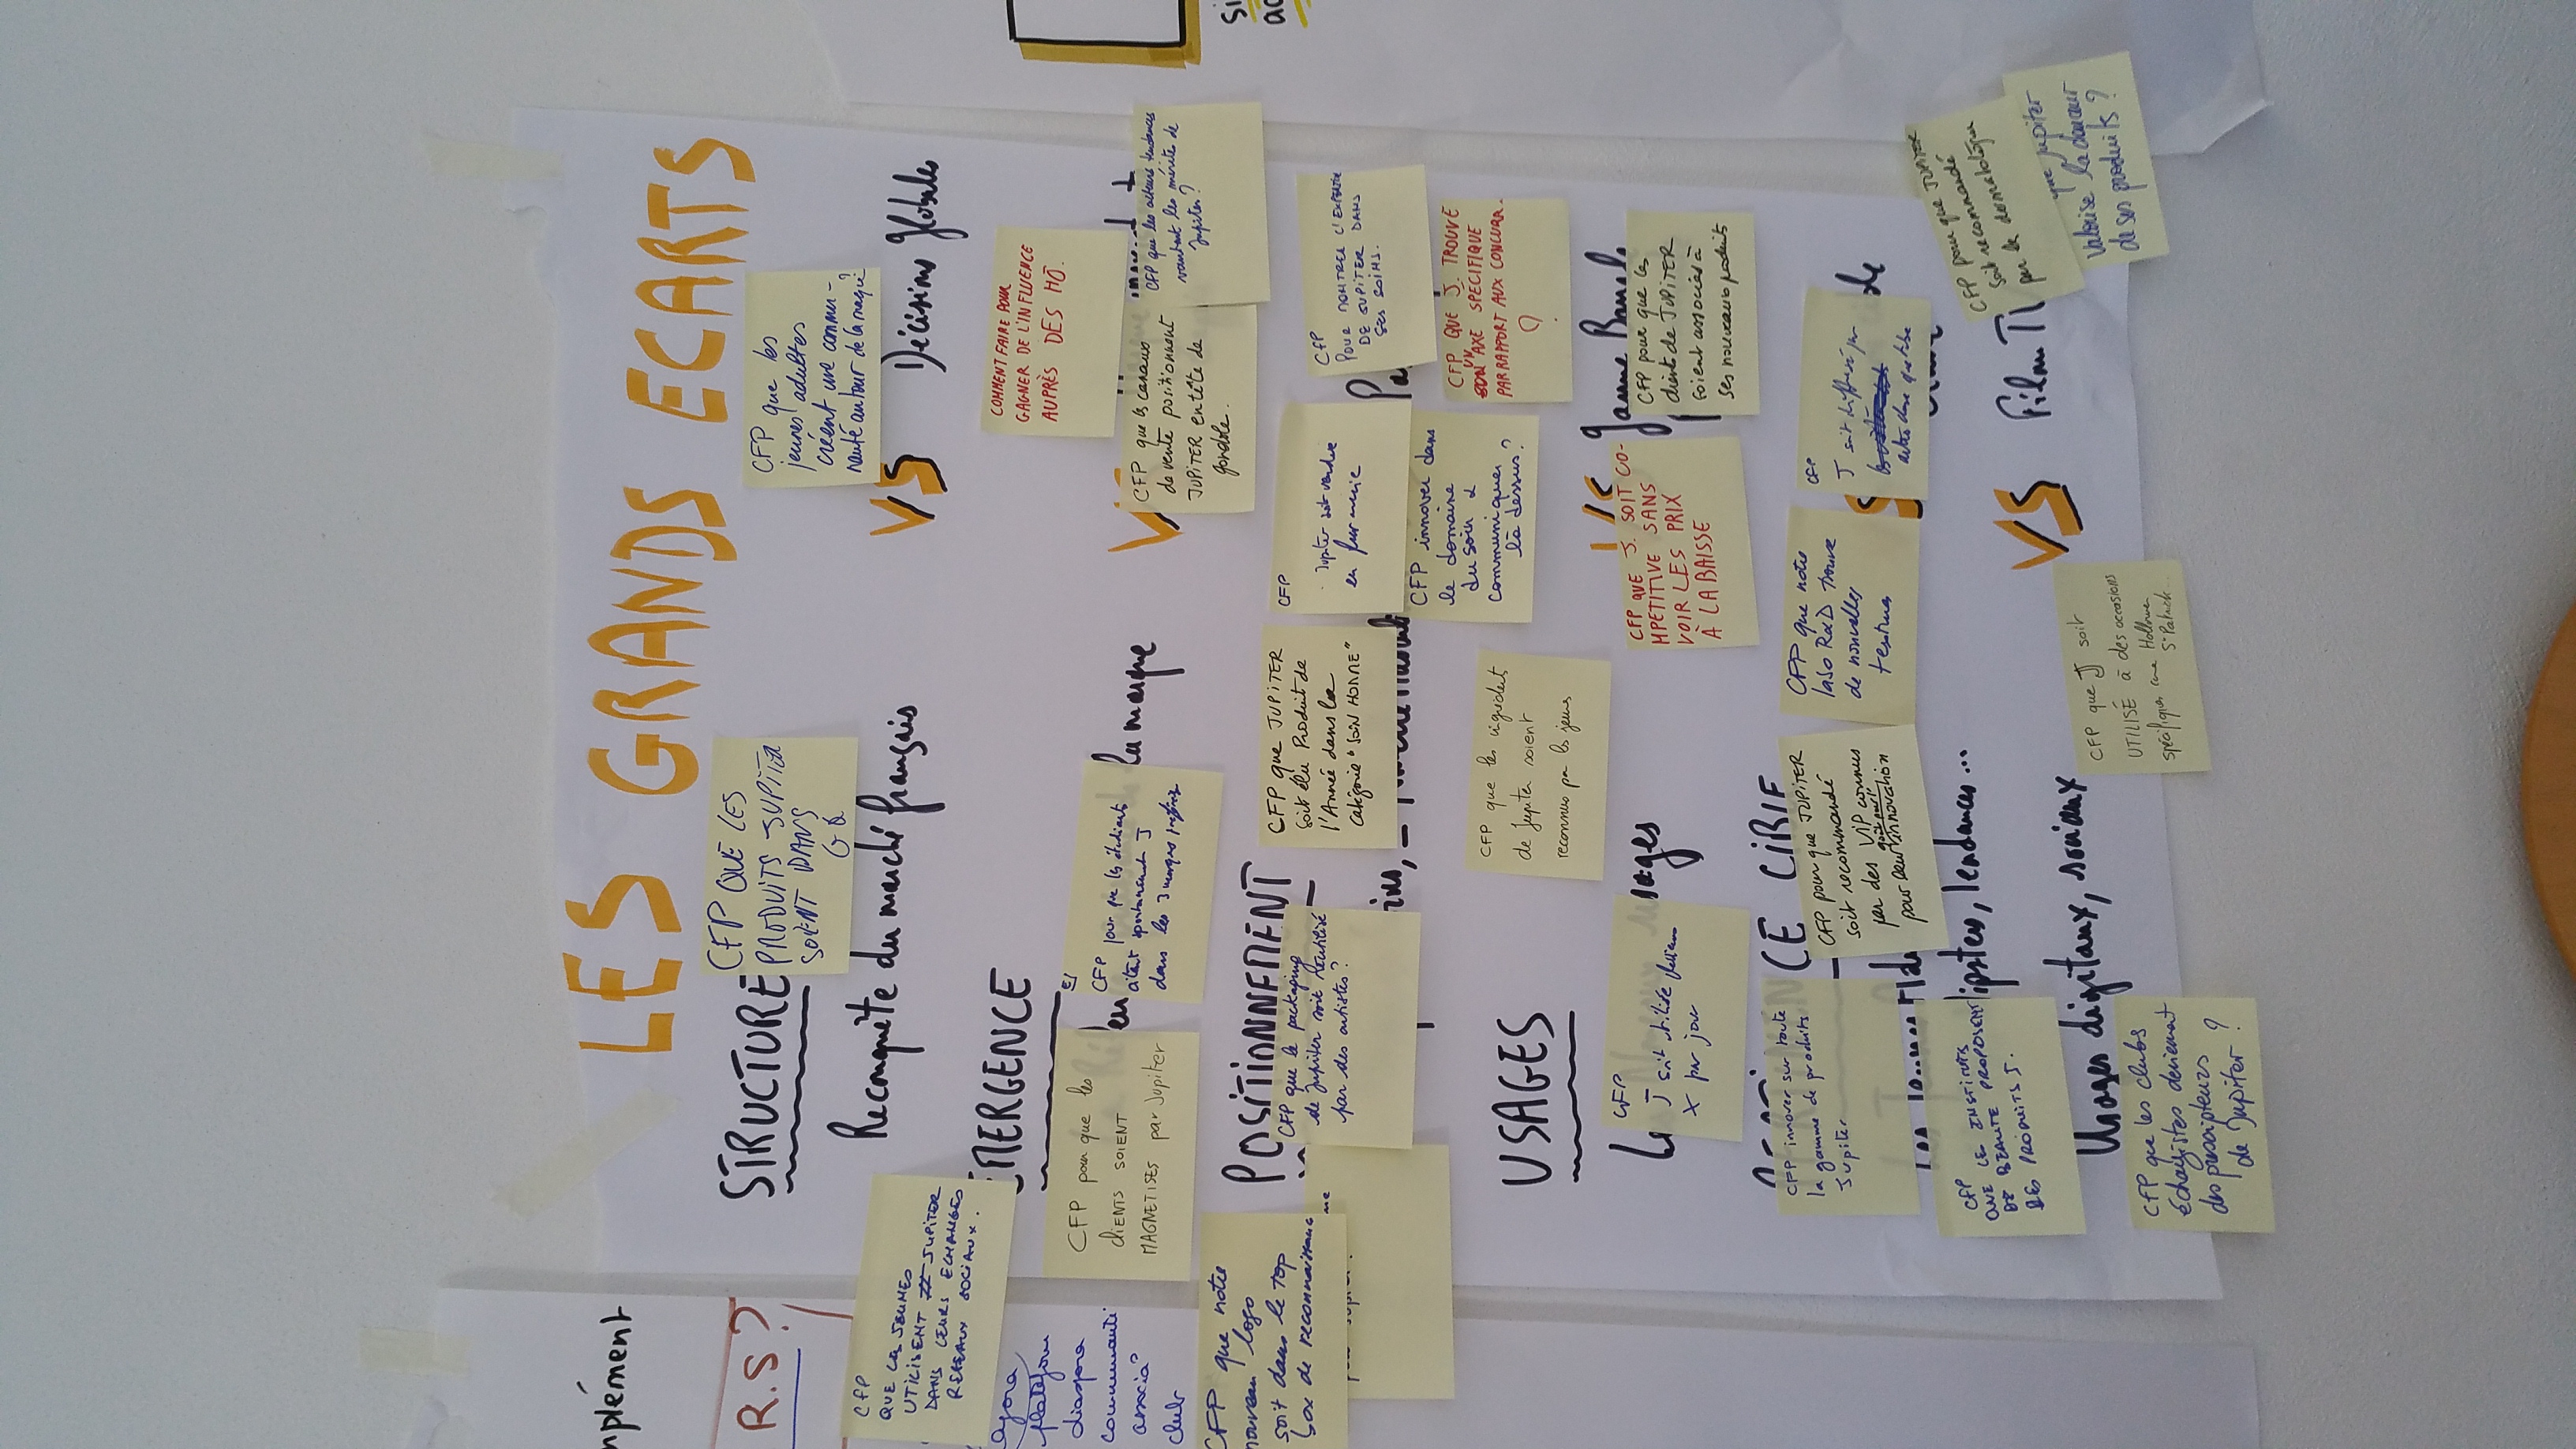 LES GRANDS ECARTS
STRUCTURE
CFP QUE LES
PRODUITS JUPITER
SOIENT DANS
GQ
Reconquête du marché français
VS
CFP que les
jeunes adultes
créent une commu-
nauté autour de la marque?
Décisions globales
EMERGENCE
CFP pour que les
clients SOIENT
MAGNETISES par Jupiter
CFP pour que les étudiants
citent spontanément J
dans les 3 marques
la marque
COMMENT FAIRE POUR
GAGNER DE L'INFLUENCE
AUPRÈS DES HO.
CFP que les canaux
de vente positionnent
JUPITER en tête de
gondole.
CFP que les acteurs tendances
vantent les mérite de
Jupiter?
POSITIONNEMENT
CFP que le packaging
de Jupiter soit réutilisé
par des artistes?
CFP que JUPITER
soit élu Produit de
l'Année dans la
catégorie "SOIN HOMME"
CFP
Jupiter soit vendue
en pharmacie
CFP
POUR MONTRER L'EXPERTISE
DE JUPITER DANS
SES SOINS.
CFP innover dans
le domaine
du soin &
communiquer
là dessus?
CFP QUE J. TROUVE
UN AXE SPECIFIQUE
PAR RAPPORT AUX CONCURR.
?
USAGES
CFP que les ingrédients
de Jupiter soient
reconnus par les jeunes
CFP
J soit utilisé plusieurs
X par jour
CFP QUE J. SOIT CO-
MPETITIVE SANS
VOIR LES PRIX
À LA BAISSE
CFP pour que les
clients de JUPITER
soient associés à
ses nouveaux produits
CE CIBLE
CFP innover sur toute
la gamme de produits
Jupiter
CFP pour que JUPITER
soit recommandé
par des VIP connus
pour leur innovation
CFP que notre
labo R&D trouve
de nouvelles
textures
CFP
J soit diffusé par
autre chose que
tendances...
CFP
QUE LES INSTITUTS
DE BEAUTE PROPOSENT
LES PRODUITS J.
Usages digitaux, sociaux
VS
Film TV
CFP que les clubs
échangistes deviennent
des prescripteurs
de Jupiter?
CFP que J soit
UTILISÉ à des occasions
spécifiques comme Hallowe
St Patrick
CFP pour que JUPITER
soit recommandé
par le dermatologue
que Jupiter
valorise la douceur
de ses produits?
R.S?
CFP
QUE LES JEUNES
UTILISENT JUPITER
DANS LEURS ECHANGES
RESEAUX SOCIAUX.
plateforme
diaspora
communauté
associa°
club
CFP que notre
nouveau logo
soit dans le TOP
box de reconnaissance